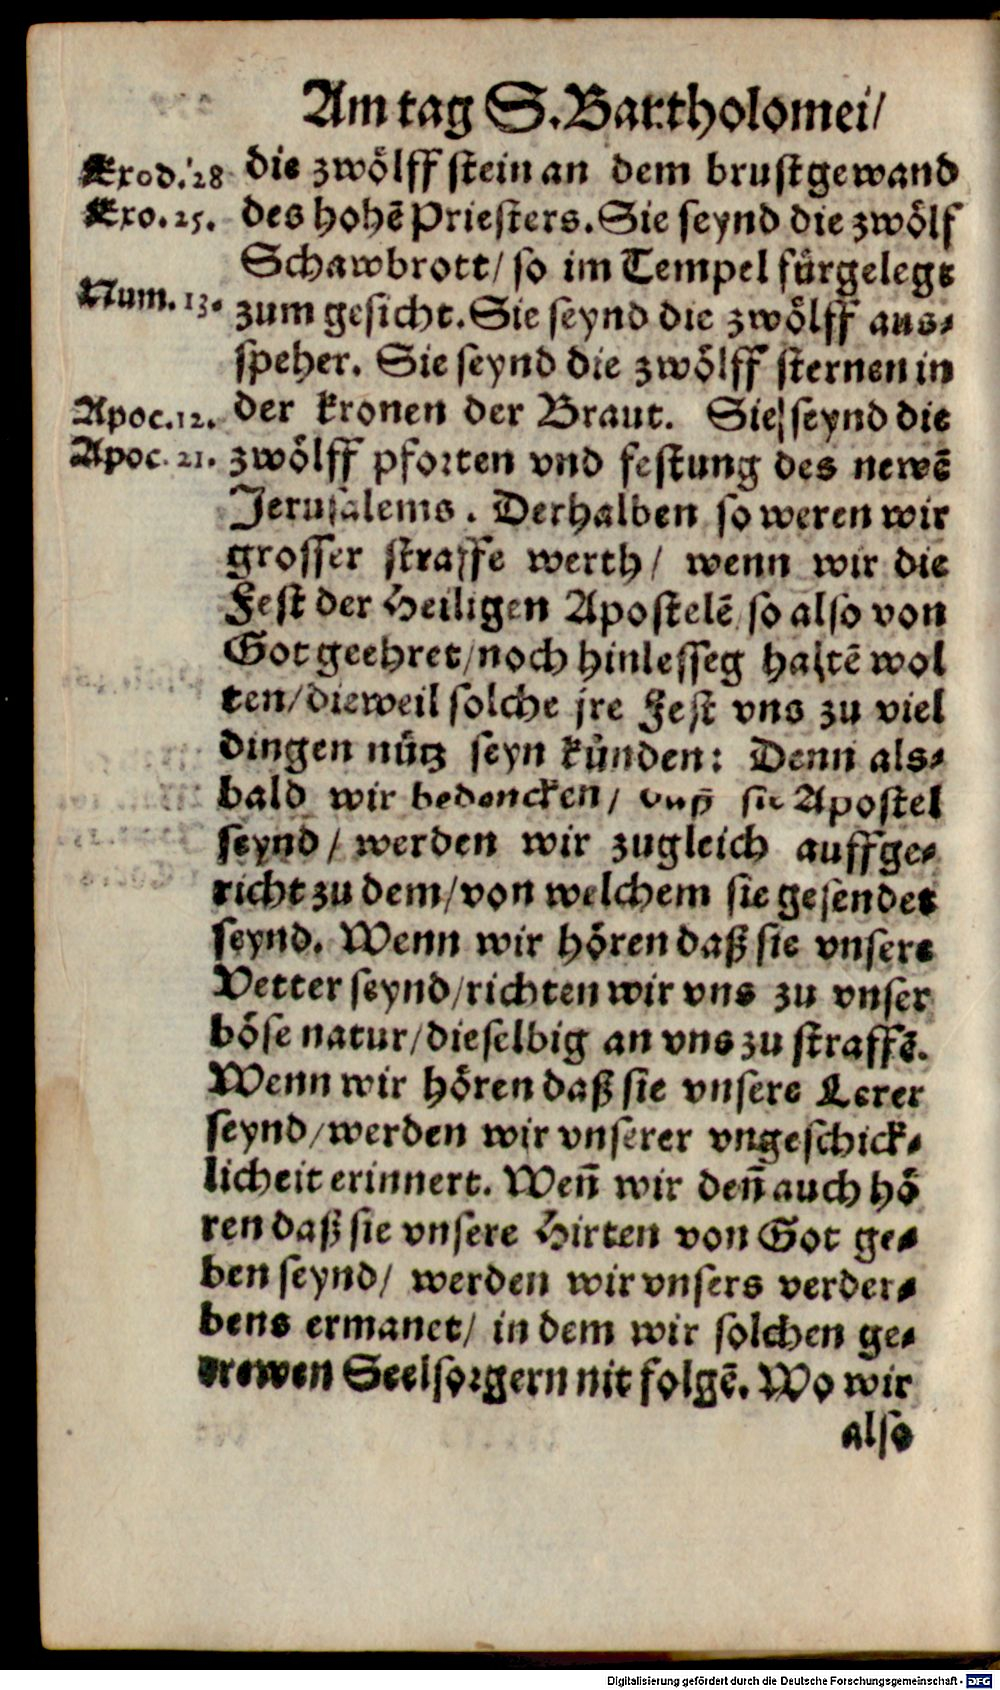 Am tag S. Bartholomei/
Exod. 28
die zwölff stein an dem brustgewand
Exo. 25.
des hohē Priesters. Sie seynd die zwölf
Schawbrott/ so im Tempel fürgelegt
Num. 13.
zum gesicht. Sie seynd die zwölff aus⸗
speher. Sie seynd die zwölff sternen in
Apoc. 12.
der kronen der Braut. Sie seynd die
Apoc. 21.
zwölff pforten vnd festung des newē
Jerusalems. Derhalben so weren wir
grosser straffe werth/ wenn wir die
Fest der Heiligen Apostelē so also von
Got geehret/ noch hinlesseg haltē wol
ten/ dieweil solche jre Fest vns zu viel
dingen nütz seyn künden: Denn als⸗
bald wir bedencken/ sie Apostel
seynd/ werden wir zugleich auffge⸗
richt zu dem/ von welchem sie gesendet
seynd. Wenn wir hören daß sie vnsere
Vetter seynd/ richten wir vns zu vnser
böse natur/ dieselbig an vns zu straffē.
Wenn wir hören daß sie vnsere Lerer
seynd/ werden wir vnserer vngeschick⸗
licheit erinnert. Weñ wir deñ auch hö
ren daß sie vnsere Hirten von Got ge⸗
ben seynd/ werden wir vnsers verder⸗
bens ermanet/ in dem wir solchen ge⸗
trewen Seelsorgern nit folgē. Wo wir
also
Digitalisierung gefördert durch die Deutsche Forschungsgemeinschaft - DFG